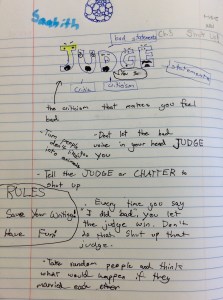 Sabith
bad statements
JUDGE
statements
Critic criticism
the critism that makes you feel
bad
- Turn people
into animals
- Dont let the bad
voice in your head JUDGE
you
- Tell the JUDGE or CHATTER to
shut up
RULES
Save Your Writings!
Have Fun!
- Every time you say
"I did bad, you let
the judge win. Don't
do that. Shut up that
judge.
- Take random people and think
what would happen if they
married each other